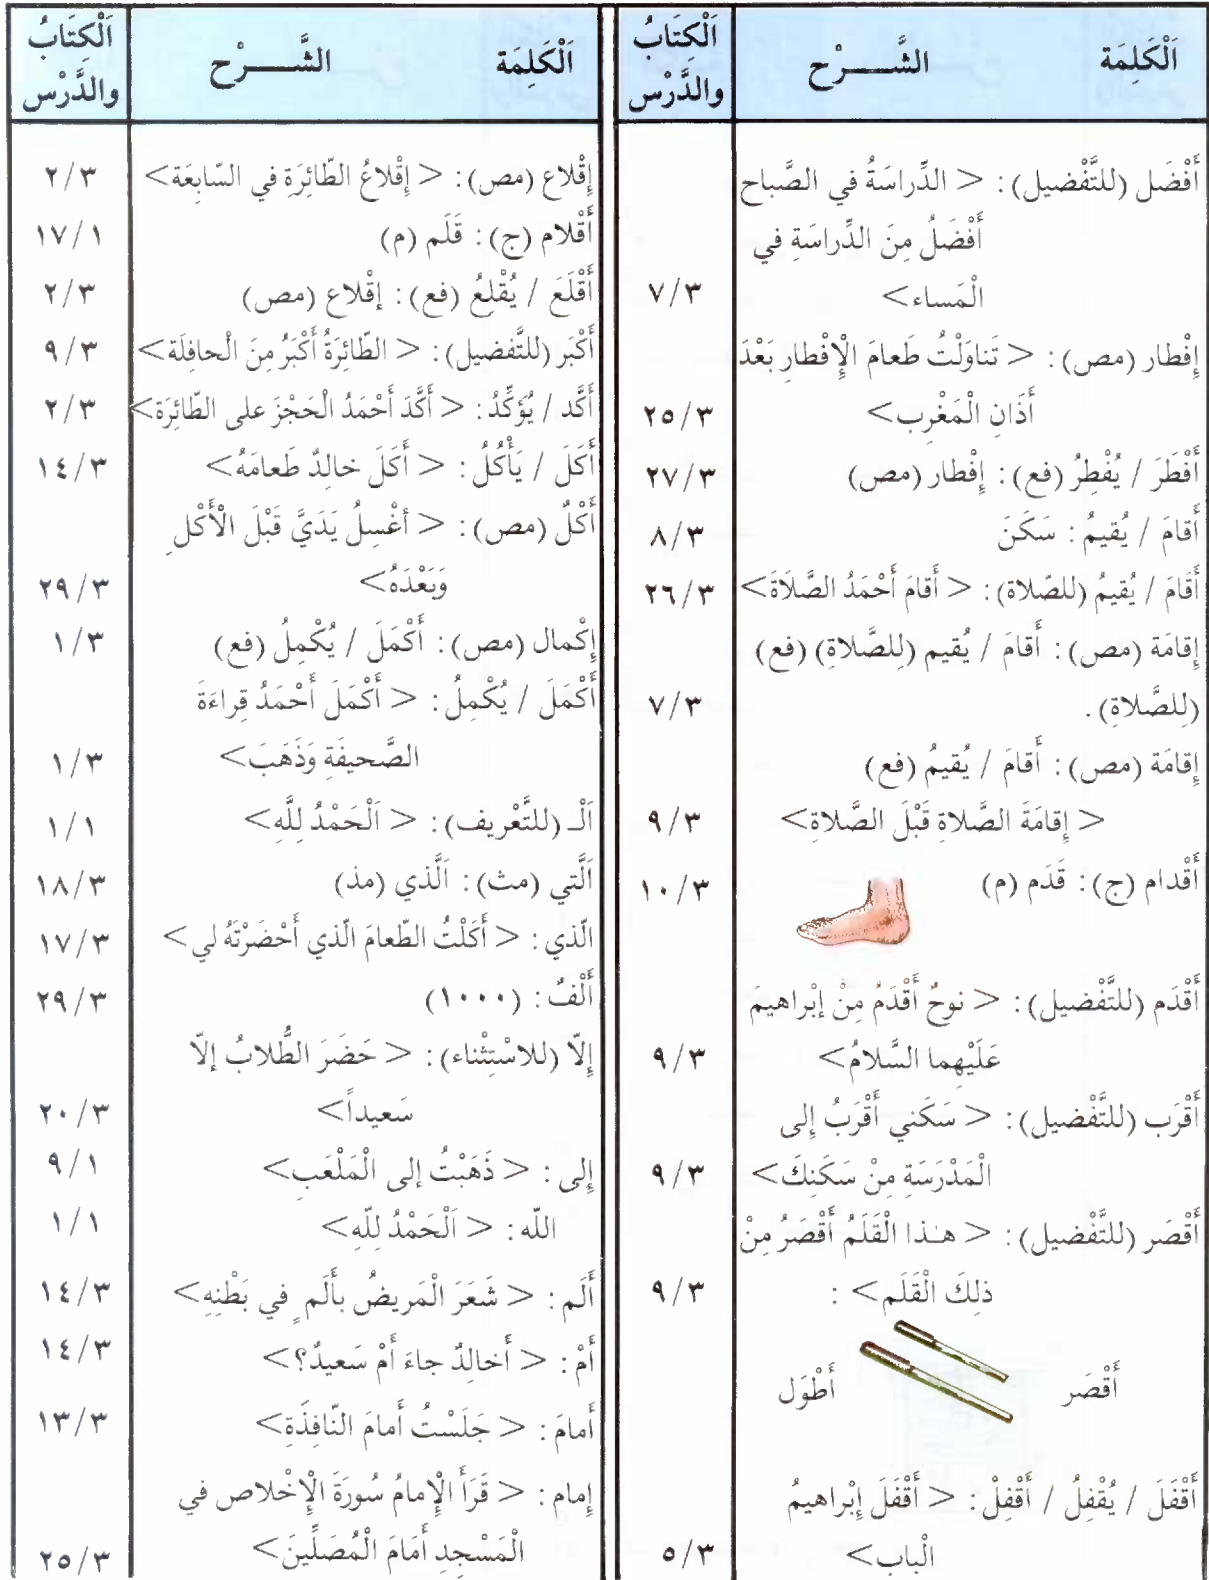 اَلْكَلِمَة الشَّـــــرْح اَلْكِتَابُ والدَّرْس
أَفْضَل (للتَّفْضيل) : < الدِّراسَةُ في الصَّباح
أَفْضَلُ مِنَ الدِّراسَةِ في
الْمَساء> ٧/٣
إِفْطار (مص) : < تَناوَلْتُ طَعامَ الْإِفْطارِ بَعْدَ
أَذَانِ الْمَغْرِب> ٢٥/٣
أَفْطَرَ / يُفْطِرُ (فع) : إِفْطار (مص) ٢٧/٣
أَقامَ / يُقيمُ : سَكَنَ ٨/٣
أَقَامَ / يُقيمُ (للصّلاة) : < أَقامَ أَحْمَدُ الصَّلَاةَ> ٢٦/٣
إِقامَة (مص) : أَقامَ / يُقيم (لِلصَّلاةِ) (فع)
(لِلصَّلاةِ) . ٧/٣
إِقامَة (مص) : أَقامَ / يُقيمُ (فع)
< إِقامَةَ الصَّلاةِ قَبْلَ الصَّلاةِ> ٩/٣
أَقْدام (ج) : قَدَم (م) ١٠/٣
أَقْدَم (للتَّفْضيل) : < نوحٌ أَقْدَمُ مِنْ إبْراهيمَ
عَلَيْهِما السَّلامُ> ٩/٣
أَقْرَب (للتَّفْضيل) : < سَكَني أَقْرَبُ إِلى
الْمَدْرَسَةِ مِنْ سَكَنِكَ> ٩/٣
أَقْصَر (للتَّفْضيل) : < هـٰذا الْقَلَمُ أَقْصَرُ مِنْ
ذلِكَ الْقَلَم> : ٩/٣
أَقْصَر أَطْوَل
أَقْفَلَ / يُقْفِلُ / أَقْفِلْ : < أَقْفَلَ إِبْراهيمُ
الْباب> ٥/٣
اَلْكَلِمَة الشَّـــــرْح اَلْكِتَابُ والدَّرْس
إِقْلاع (مص) : < إِقْلاعُ الطّائِرَةِ في السّابِعَة> ٢/٣
أَقْلام (ج) : قَلَم (م) ١٧/١
أَقْلَعَ / يُقْلِعُ (فع) : إقْلاع (مص) ٢/٣
أَكْبَر (للتَّفضيل) : < الطّائِرَةُ أَكْبَرُ مِنَ الْحافِلَة> ٩/٣
أَكَّد / يُؤَكِّدُ : < أَكَّدَ أَحْمَدُ الْحَجْزَ على الطّائِرَة> ٢/٣
أَكَلَ / يَأْكُلُ : < أَكَلَ خالِدٌ طَعامَهُ> ١٤/٣
أَكْلٌ (مص) : < أغْسِلُ يَدَيَّ قَبْلَ الْأَكْلِ
وَبَعْدَهُ> ٢٩/٣
إِكْمال (مص) : أَكْمَلَ / يُكْمِلُ (فع) ١/٣
أَكْمَلَ / يُكْمِلُ : < أَكْمَلَ أَحْمَدُ قِراءَةَ
الصَّحيفَةِ وَذَهَبَ> ١/٣
اَلْـ (للتَّعْريف) : < اَلْحَمْدُ لِلَّهِ> ١/١
اَلَّتي (مث) : اَلَّذي (مذ) ١٨/٣
الّذي : < أَكَلْتُ الطّعامَ الّذي أَحْضَرْتَهُ لي> ١٧/٣
أَلْفٌ : (١٠٠٠) ٢٩/٣
إِلّا (للاسْتِثْناء) : < حَضَرَ الطُّلابُ إلّا
سَعيداً> ٢٠/٣
إِلى : < ذَهَبْتُ إلى الْمَلْعَبِ> ٩/١
اللّه : < اَلْحَمْدُ لِلّهِ> ١/١
أَلَم : < شَعَرَ الْمَريضُ بأَلَمٍ في بَطْنِهِ> ١٤/٣
أَمْ : < أَخالِدٌ جاءَ أَمْ سَعيدٌ؟> ١٤/٣
أَمامَ : < جَلَسْتُ أَمامَ النّافِذَةِ> ١٣/٣
إِمام : < قَرَأَ الْإِمامُ سُورَةَ الْإِخْلاص في
الْمَسْجِدِ أَمَامَ الْمُصَلِّينَ> ٢٥/٣